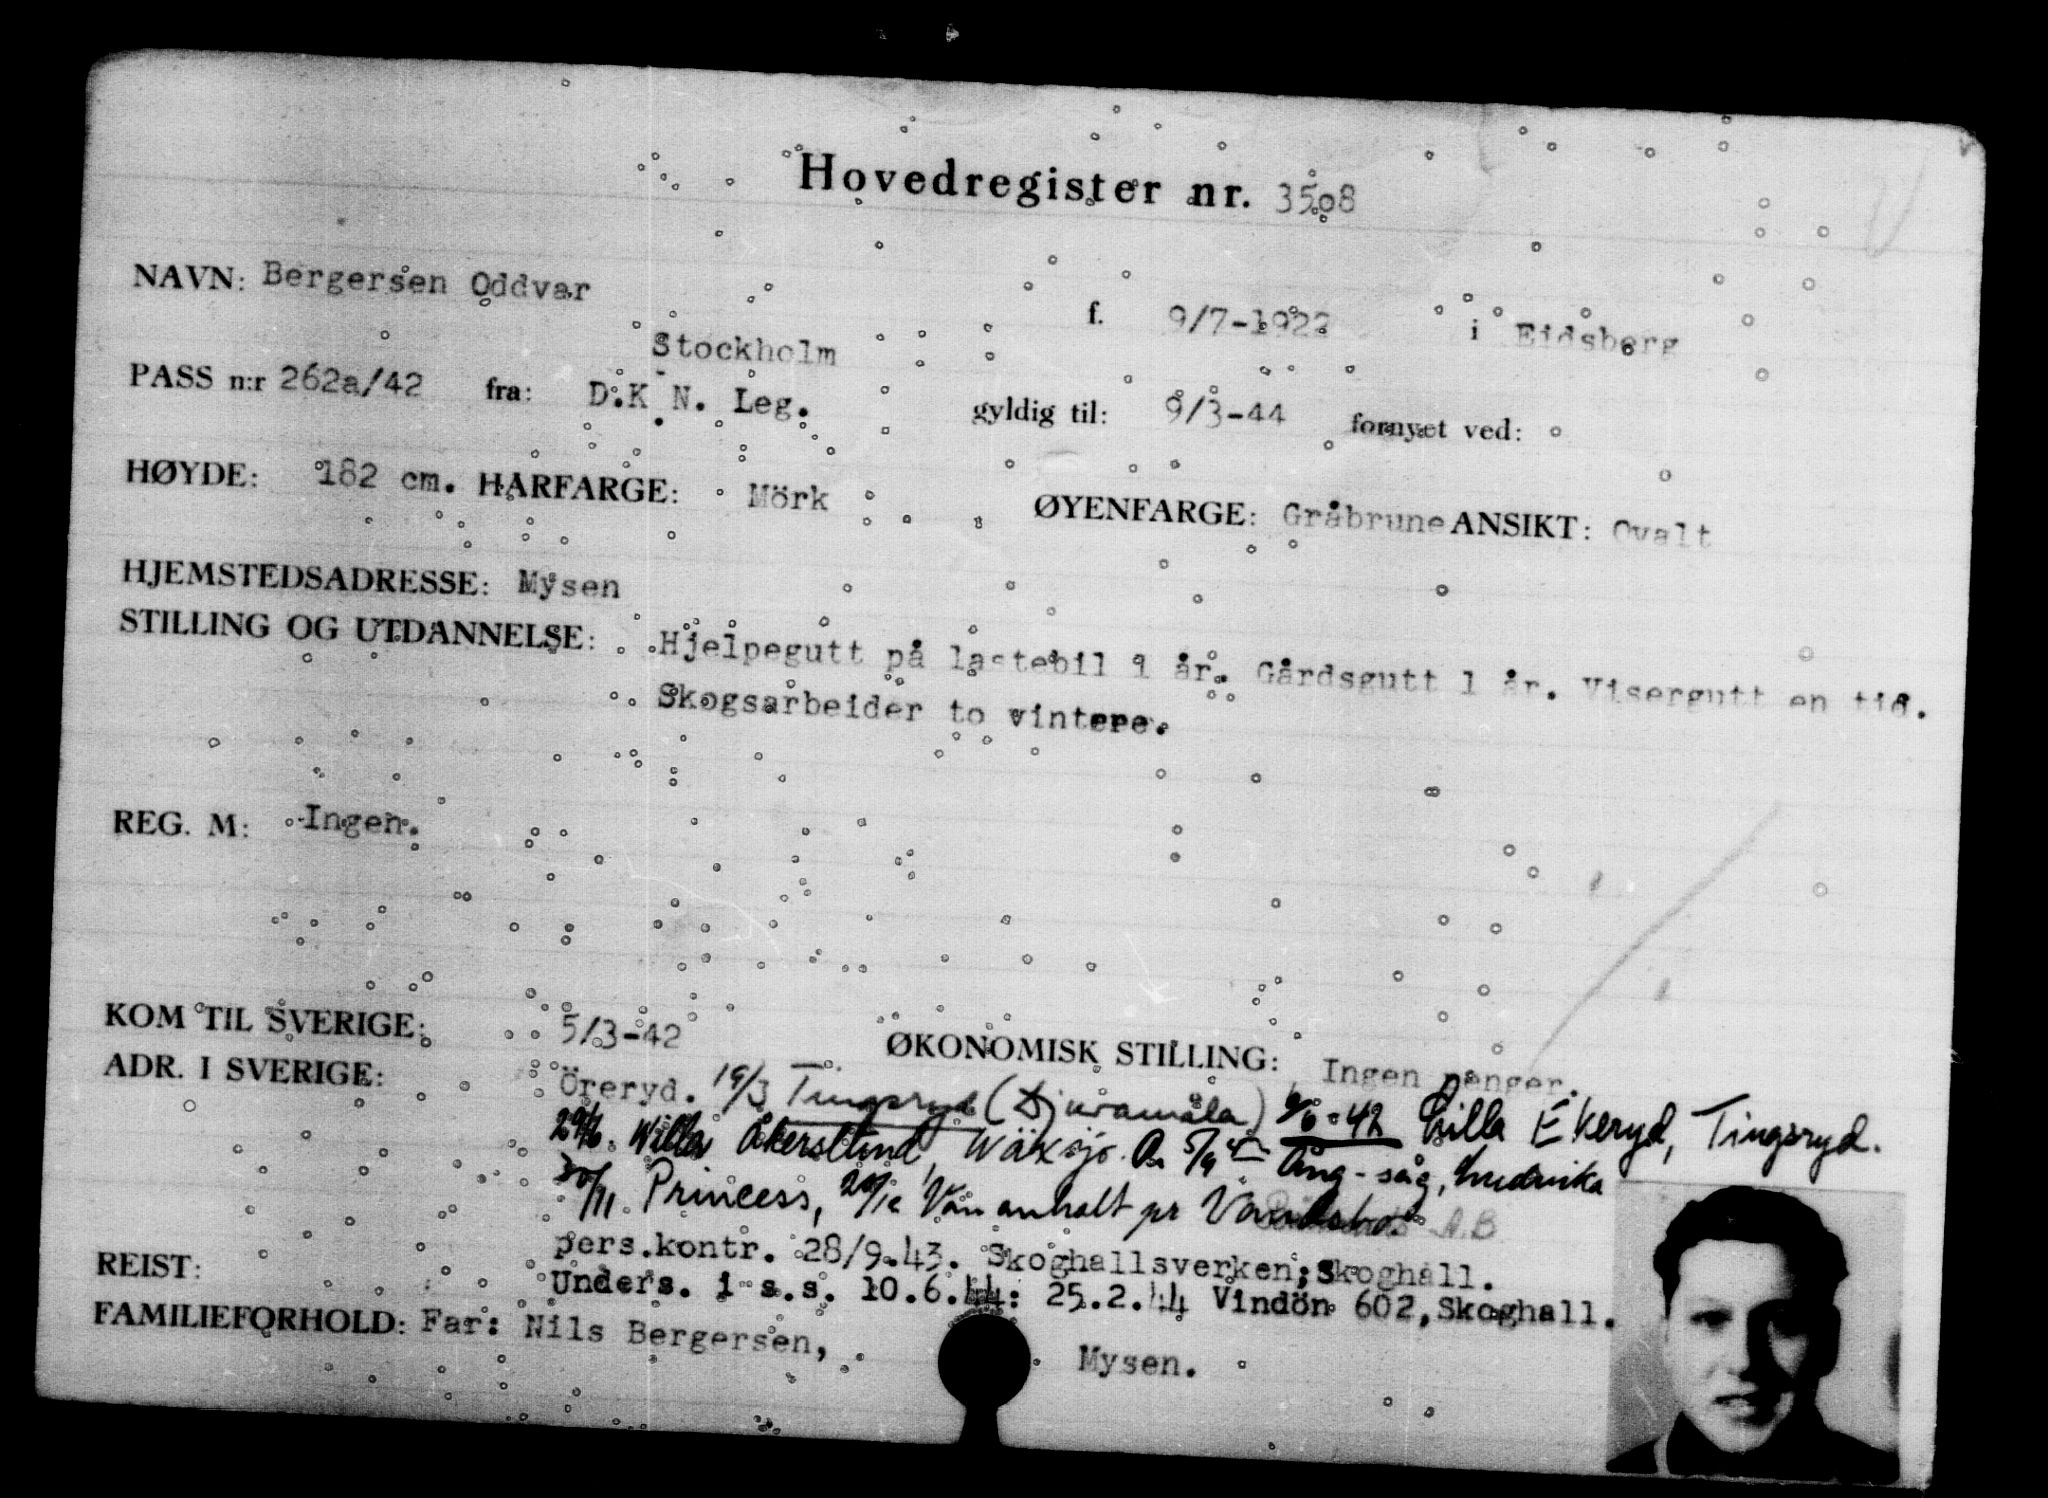 Hovedregister nr. 3508
NAVN: Bergersen Oddvar f. 9/7-1922 i Eidsberg
Stockholm
PASS n:r 262a/42 fra: D.K N. Leg. gyldig til: 9/3-44 fornyet ved:
HØYDE: 182 cm. HARFARGE: Mörk ØYENFARGE: Gråbrune ANSIKT: Ovalt
HJEMSTEDSADRESSE: Mysen
STILLING OG UTDANNELSE: Hjelpegutt på lastebil 1 år. Gårdsgutt 1 år. Visergutt en tid.
Skogsarbeider to vintere.
REG. M: Ingen.
KOM TIL SVERIGE: 5/3-42 ØKONOMISK STILLING: Ingen penger.
ADR. I SVERIGE: Öreryd. 19/3 Tingsryd (Djuramåla) 9/6-42 Lilla Ekeryd, Tingsryd.
29/6. Willa Åkerslund, Wäxsjö. 5/9 Ång-såg,
30/11 Princess, Vån anhalt pr
pers.kontr. 28/9.43. Skoghallsverken; Skoghall. A.B
REIST: Unders. i s.s. 10.6.44: 25.2.44 Vindön 602, Skoghall.
FAMILIEFORHOLD: Far: Nils Bergersen, Mysen.